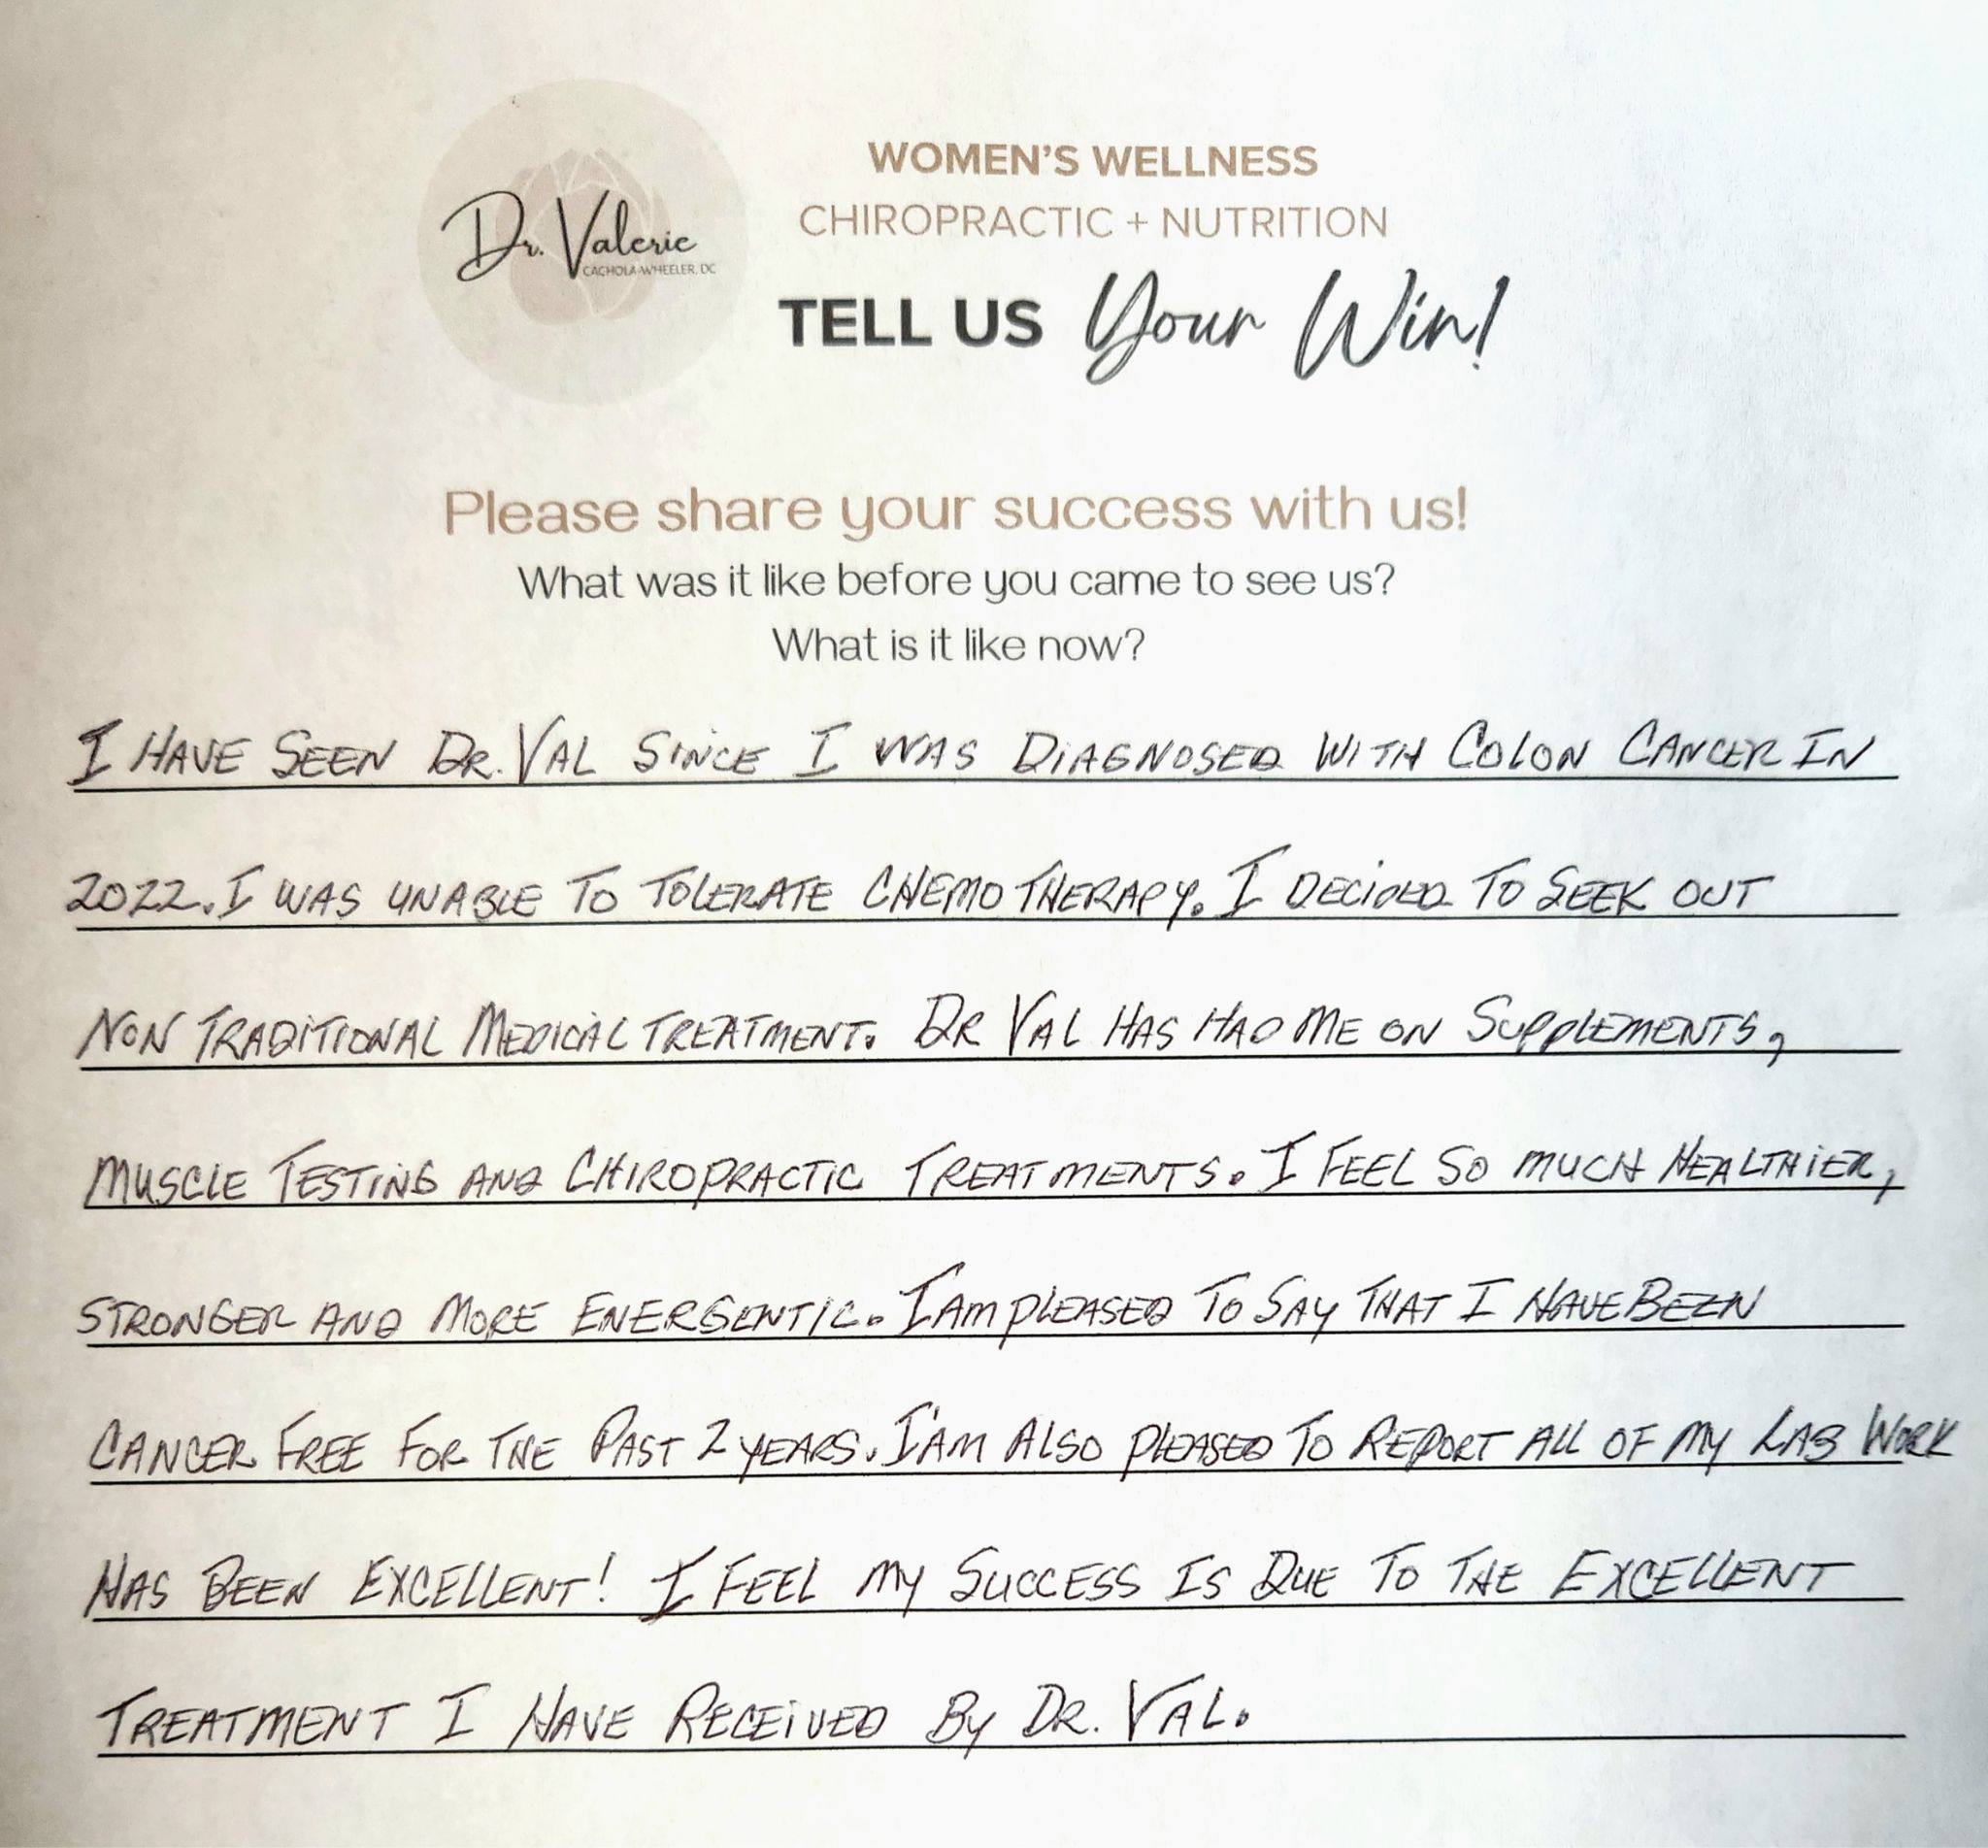 Dr. Valerie
CACHOLA-WHEELER, DC
WOMEN'S WELLNESS
CHIROPRACTIC + NUTRITION
TELL US Your Win!
Please share your success with us!
What was it like before you came to see us?
What is it like now?
I HAVE SEEN DR. VAL SINCE I WAS DIAGNOSED WITH COLON CANCER IN
2022. I WAS UNABLE TO TOLERATE CHEMO THERAPY. I DECIDED TO SEEK OUT
NON TRADITIONAL MEDICAL TREATMENT. DR VAL HAS HAD ME ON SUPPLEMENTS,
MUSCLE TESTING AND CHIROPRACTIC TREATMENTS. I FEEL SO MUCH HEALTHIER,
STRONGER AND MORE ENERGENTIC. I AM PLEASED TO SAY THAT I HAVE BEEN
CANCER FREE FOR THE PAST 2 YEARS. I'AM ALSO PLEASED TO REPORT ALL OF MY LAB WORK
HAS BEEN EXCELLENT! I FEEL MY SUCCESS IS DUE TO THE EXCELLENT
TREATMENT I HAVE RECEIVED BY DR. VAL.